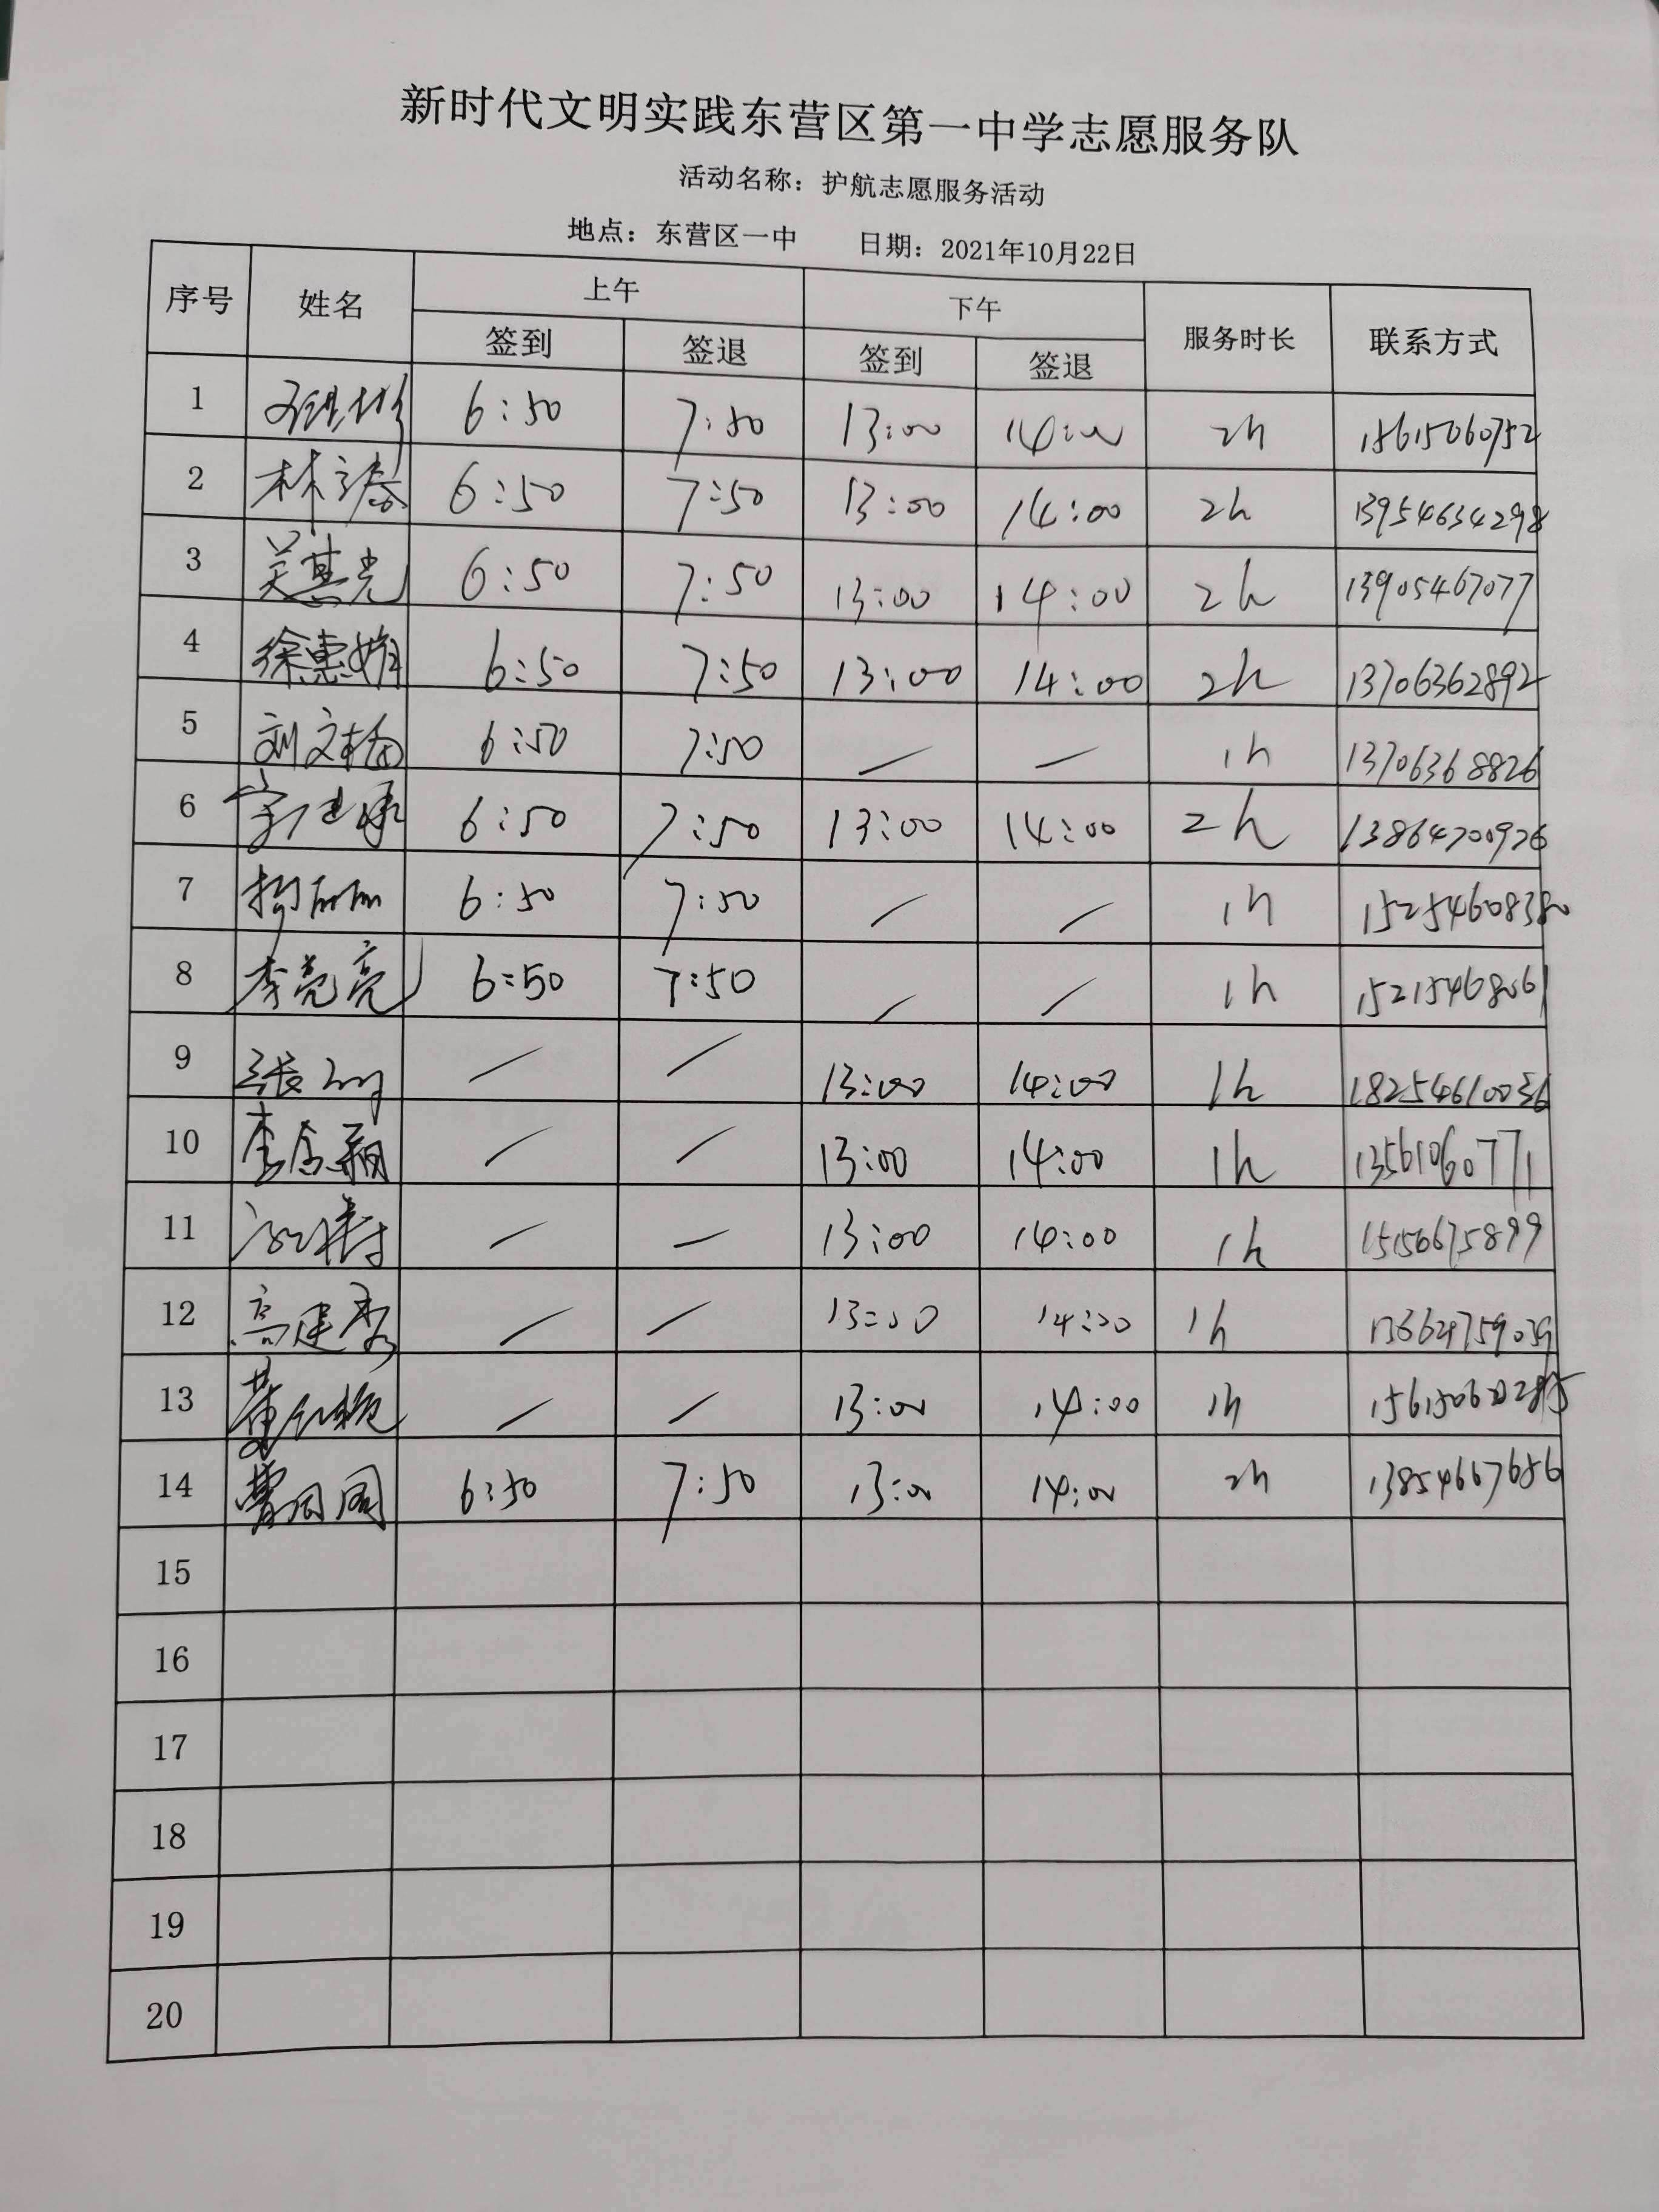 新时代文明实践东营区第一中学志愿服务队
活动名称：护航志愿服务活动
地点：东营区一中 日期：2021年10月22日
序号 姓名 上午 下午 服务时长 联系方式
签到 签退 签到 签退
1 6:50 7:50 13:00 14:00 2h 15615060752
2 林 春 6:50 7:50 13:00 14:00 2h 13954634298
3 吴基光 6:50 7:50 13:00 14:00 2h 13905467077
4 徐惠娟 6:50 7:50 13:00 14:00 2h 13706362892
5 刘文梅 6:50 7:50 — — 1h 13706368826
6 6:50 7:50 13:00 14:00 2h 13864700926
7 6:50 7:50 / / 1h 15254608380
8 李亮亮 6:50 7:50 / / 1h 15215468061
9 张 / / 13:00 14:00 1h 18254610036
10 李 / / 13:00 14:00 1h 13561060771
11 — — 13:00 14:00 1h 15156675899
12 高建秀 / / 13:00 14:00 1h
13 董红艳 / / 13:00 14:00 1h
14 曹 6:50 7:50 13:00 14:00 2h 13854667656
15
16
17
18
19
20